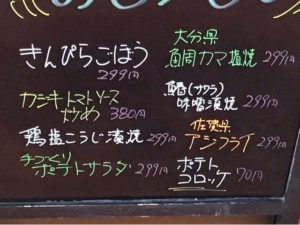 きんぴらごぼう
299円
カジキトマトソース
炒め 380円
鶏塩こうじ漬焼 299円
手づくり
ポテトサラダ 299円
大分県
鯛カマ塩焼 299円
(サワラ)
味噌漬焼 299円
佐賀県
アジフライ 299円
ポテト
コロッケ 70円